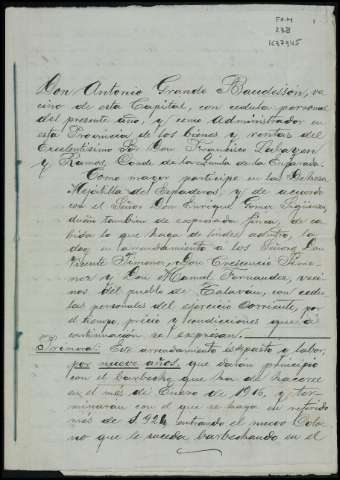 Don Antonio Grande Baudesson, ve
cino de esta Capital, con cedula personal
del presente año, y como Administrador en
esta Provincia de los bienes y rentas del
Excelentisimo Sr. Don Francisco
y Ramos, Conde de la de la Enjarada.
Como mayor participe en la Dehesa
Mojatilla de Espaderos, y de acuerdo
con el Señor Don Enrique
dueño tambien de expresada finca, de ca
bida lo que haga de lindes adentro, la
doy en arrendamiento á los Señores Don
Vicente Don Crescencio
y Don Manuel Fernandez, veci
nos del pueblo de Talavan, con cedu
las personales del ejercicio corriente, por
el tiempo, precio y condiciones que á
continuación se expresan.
Primera: Este arrendamiento es á pasto y labor
por nueve años, que daran principio
con el barbecho que ha de hacerse
en el més de Enero de 1916, y ter
minaran con el que se haga en referido
més de 1924, entrando el nuevo Colo
no que le suceda barbechando en el